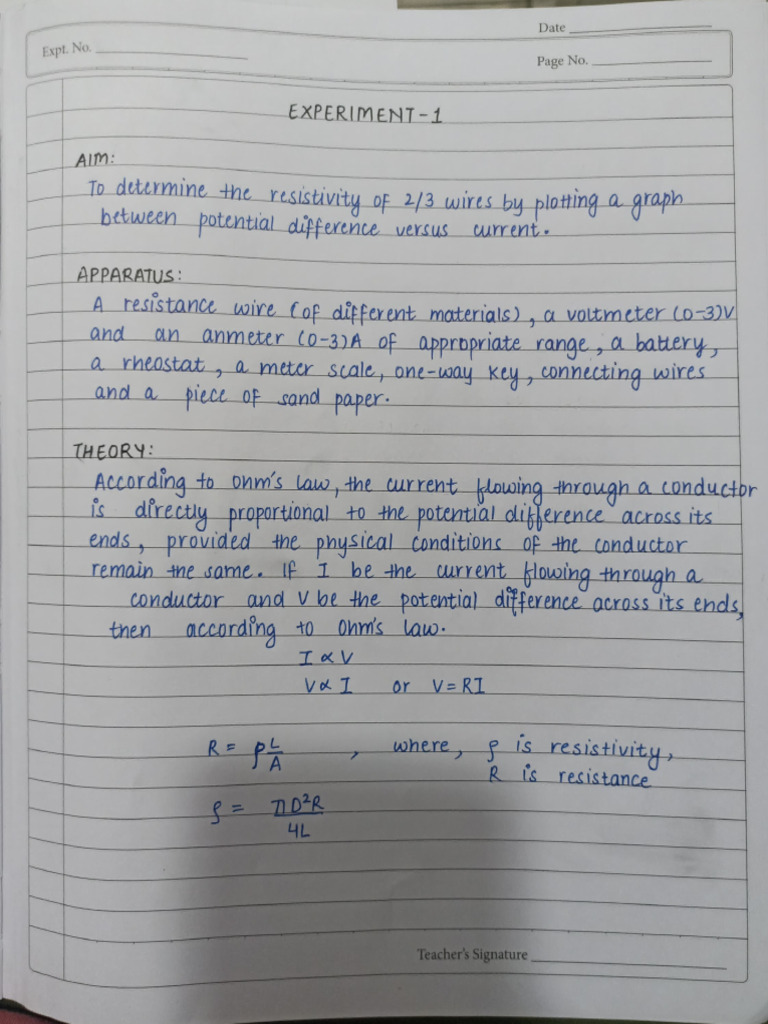 Date
Expt. No.
Page No.
EXPERIMENT-1
AIM:
To determine the resistivity of 2/3 wires by plotting a graph
between potential difference versus current.
APPARATUS:
A resistance wire (of different materials), a voltmeter (0-3)V
and an anmeter (0-3)A of appropriate range, a battery,
a rheostat, a meter scale, one-way key, connecting wires
and a piece of sand paper.
THEORY:
According to Ohm's law, the current flowing through a conductor
is directly proportional to the potential difference across its
ends, provided the physical conditions of the conductor
remain the same. If I be the current flowing through a
conductor and V be the potential difference across its ends,
then according to Ohm's law.
I ∝ V
V ∝ I or V = RI
R = ρ L/A , where, ρ is resistivity,
R is resistance
ρ = πD²R/4L
Teacher's Signature